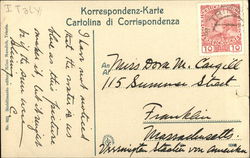 ITALY
Korrespondenz-Karte
Cartolina di Corrispondenza
10 10
I have not noticed
that the water is as
blue as this picture
makes it, but might
be if the sun were
An
Al
Miss Dora M. Cargill
115 Summer Street
Franklin
Massachusetts
Vereinigten Staaten von Amerika